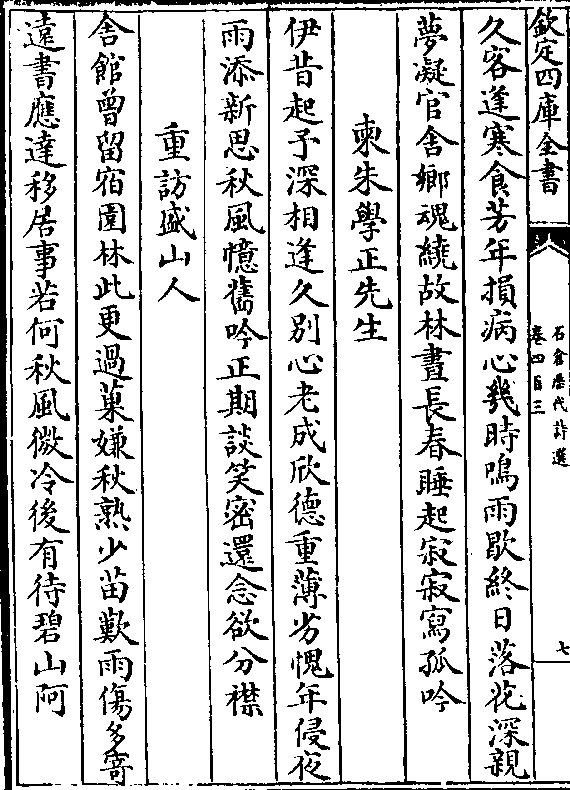 欽定四庫全書
石倉歷代詩選
卷四百三
七
久客逢寒食芳年損病心幾時鳴雨歇終日落花深親
夢凝官舍鄉魂繞故林晝長春睡起寂寂寫孤吟
柬朱學正先生
伊昔起予深相逢久别心老成欣德重薄劣愧年侵夜
雨添新思秋風憶舊吟正期談笑密還念欲分襟
重訪盛山人
舍館曾留宿園林此更過菓嫌秋熟少苗歎雨傷多寄
遠書應達移居事若何秋風微冷後有待碧山阿